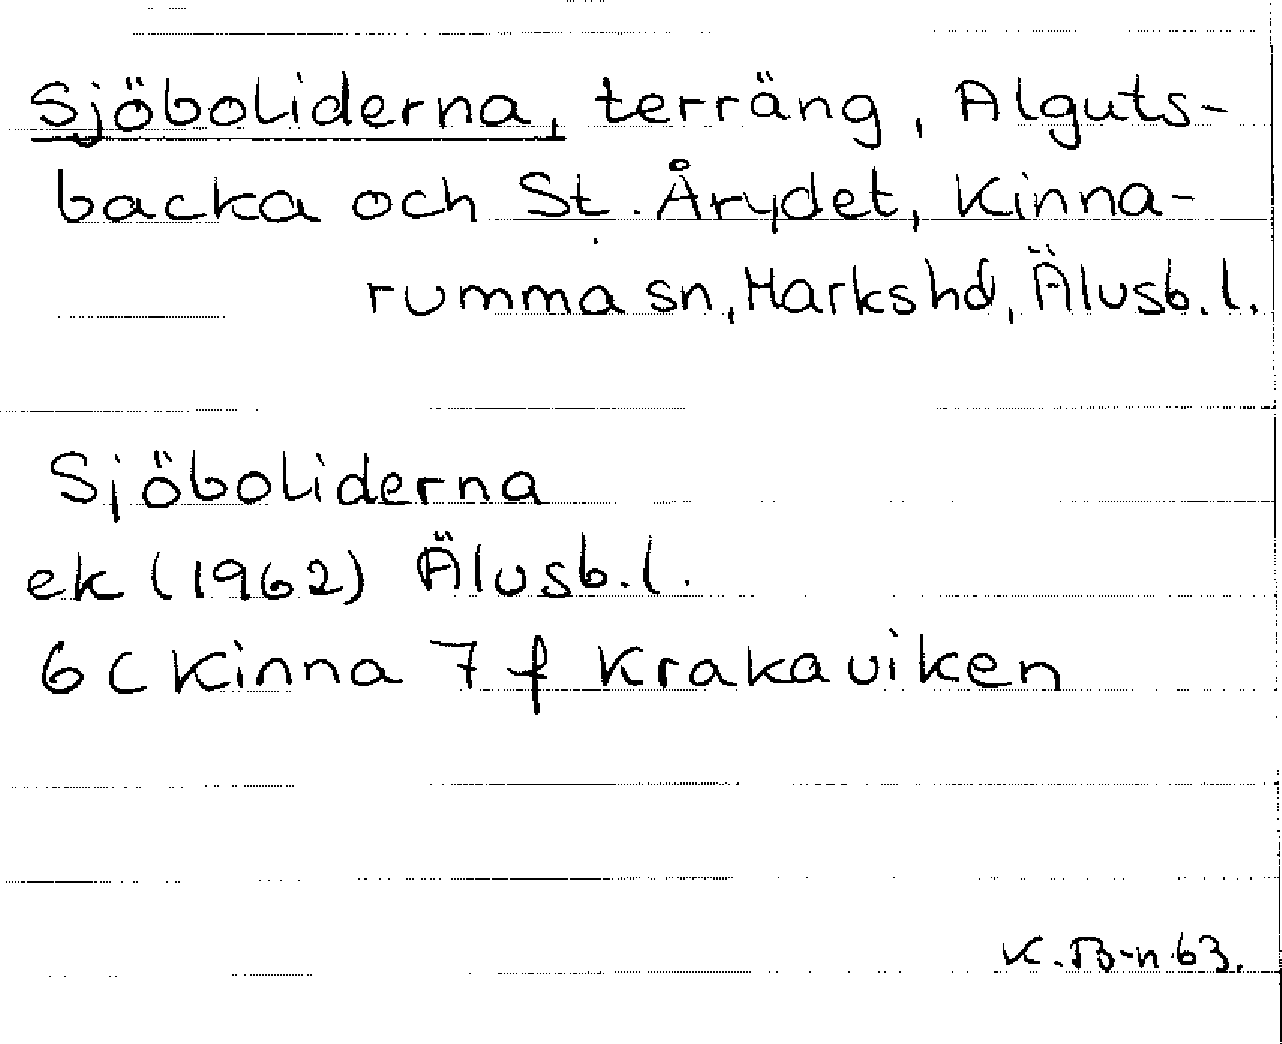 Sjöboliderna, terräng, Alguts-
backa och St. Årydet, Kinna-
rumma sn, Marks hd, Älvsb. l.
Sjöboliderna
ek (1962) Älvsb. l.
6 C Kinna 7 f Krakaviken
K. B-n 63.